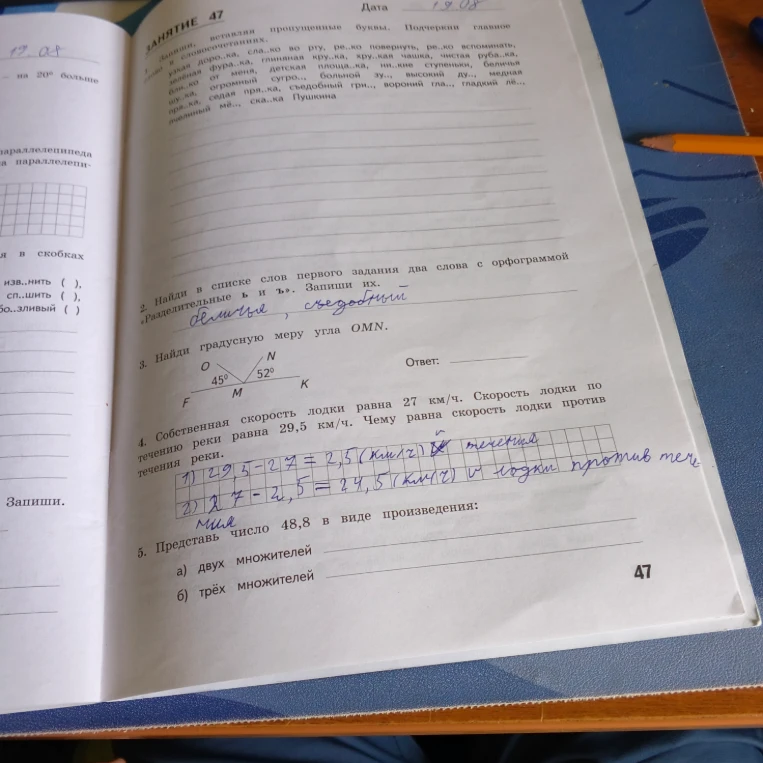 19.08
– на 20° больше
параллелепипеда
а параллелепи-
я в скобках
изв..нить ( ),
сп..шить ( ),
бо..зливый ( )
Запиши.
ЗАНЯТИЕ 47
Дата 19 08
1. Запиши, вставляя пропущенные буквы. Подчеркни главное
слово в словосочетаниях.
Узкая доро..ка, сла..ко во рту, ре..ко повернуть, ре..ко вспоминать,
зелёная фура..ка, глиняная кру..ка, хру..кая чашка, чистая руба..ка,
бли..ко от меня, детская площа..ка, ни..кие ступеньки, беличья
шу..ка, огромный сугро.., больной зу.., высокий ду.., медная
пря..ка, седая пря..ка, съедобный гри.., вороний гла.., гладкий лё..,
пчелиный мё.., ска..ка Пушкина
2. Найди в списке слов первого задания два слова с орфограммой
«Разделительные ь и ъ». Запиши их.
беличья, съедобный
3. Найди градусную меру угла OMN.
O N
45° 52°
F M K
Ответ:
4. Собственная скорость лодки равна 27 км/ч. Скорость лодки по
течению реки равна 29,5 км/ч. Чему равна скорость лодки против
течения реки.
1) 29,5 – 27 = 2,5 (км/ч) v течения
2) 27 – 2,5 = 24,5 (км/ч) v лодки против тече
ния
5. Представь число 48,8 в виде произведения:
а) двух множителей
б) трёх множителей
47